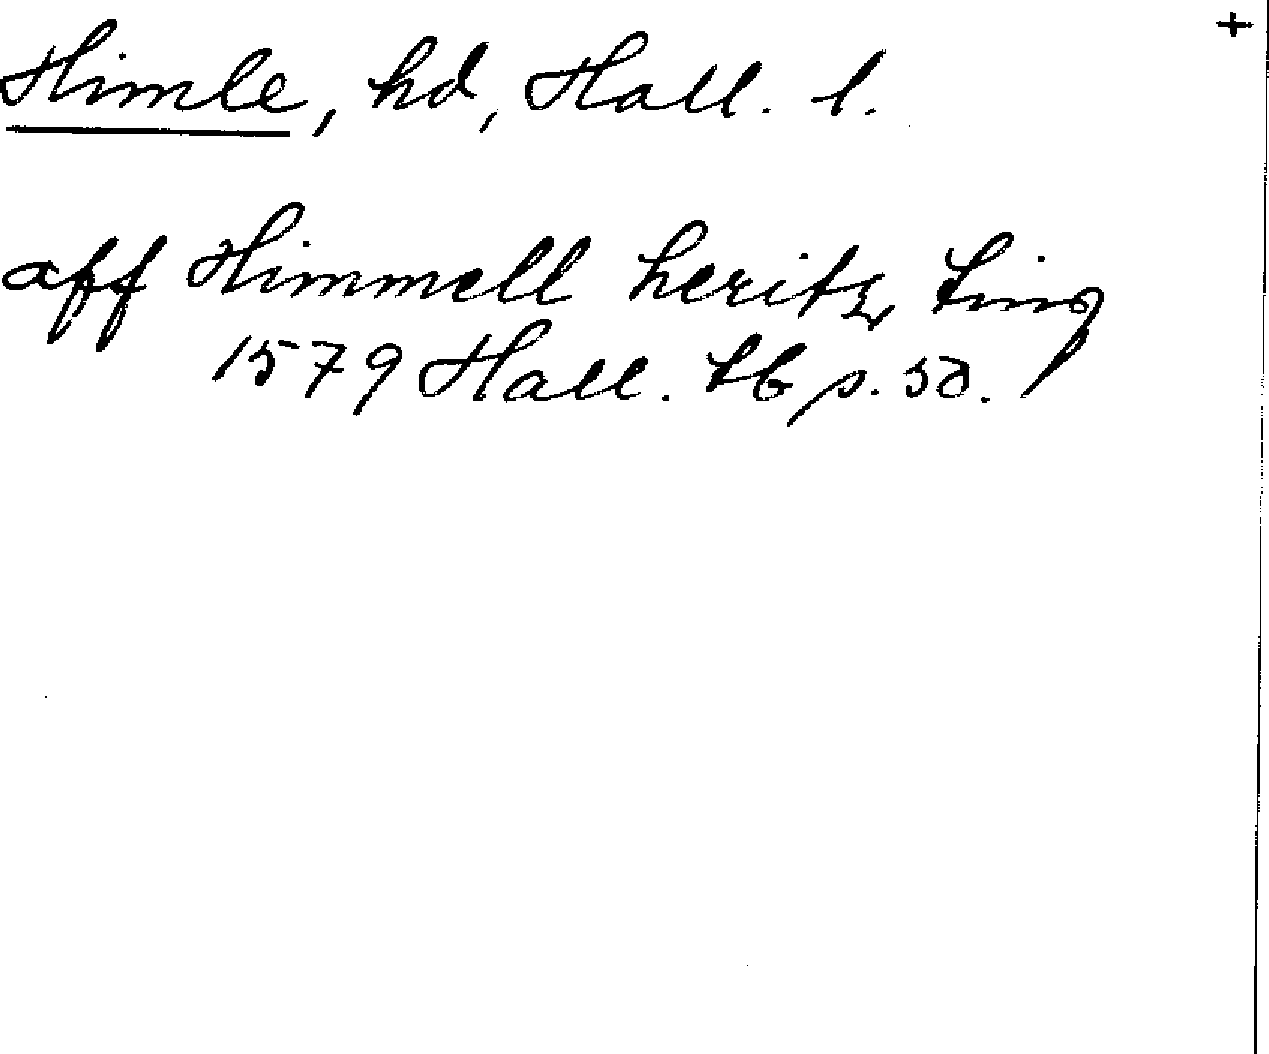 Himle, hd, Hall. l. +
aff Himmell heritz Ting
1579 Hall. tb p. 50.